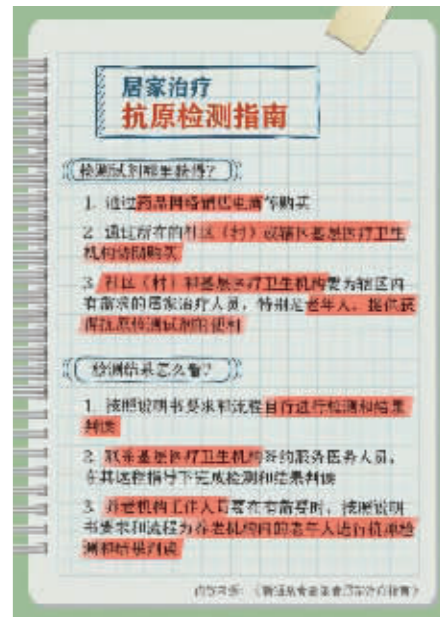 居家治疗
抗原检测指南
检测试剂哪里获得？
1. 通过药品网络销售电商等购买
2. 通过所在的社区（村）或辖区基层医疗卫生
机构协助购买
3. 社区（村）和基层医疗卫生机构要为辖区内
有需求的居家治疗人员，特别是老年人，提供获
得抗原检测试剂的便利
检测结果怎么看？
1. 按照说明书要求和流程自行进行检测和结果
判读
2. 联系基层医疗卫生机构签约服务医务人员，
在其远程指导下完成检测和结果判读
3. 养老机构工作人员要在有需要时，按照说明
书要求和流程为养老机构内的老年人进行抗原检
测和结果判读
内容来源：《新冠病毒感染者居家治疗指南》